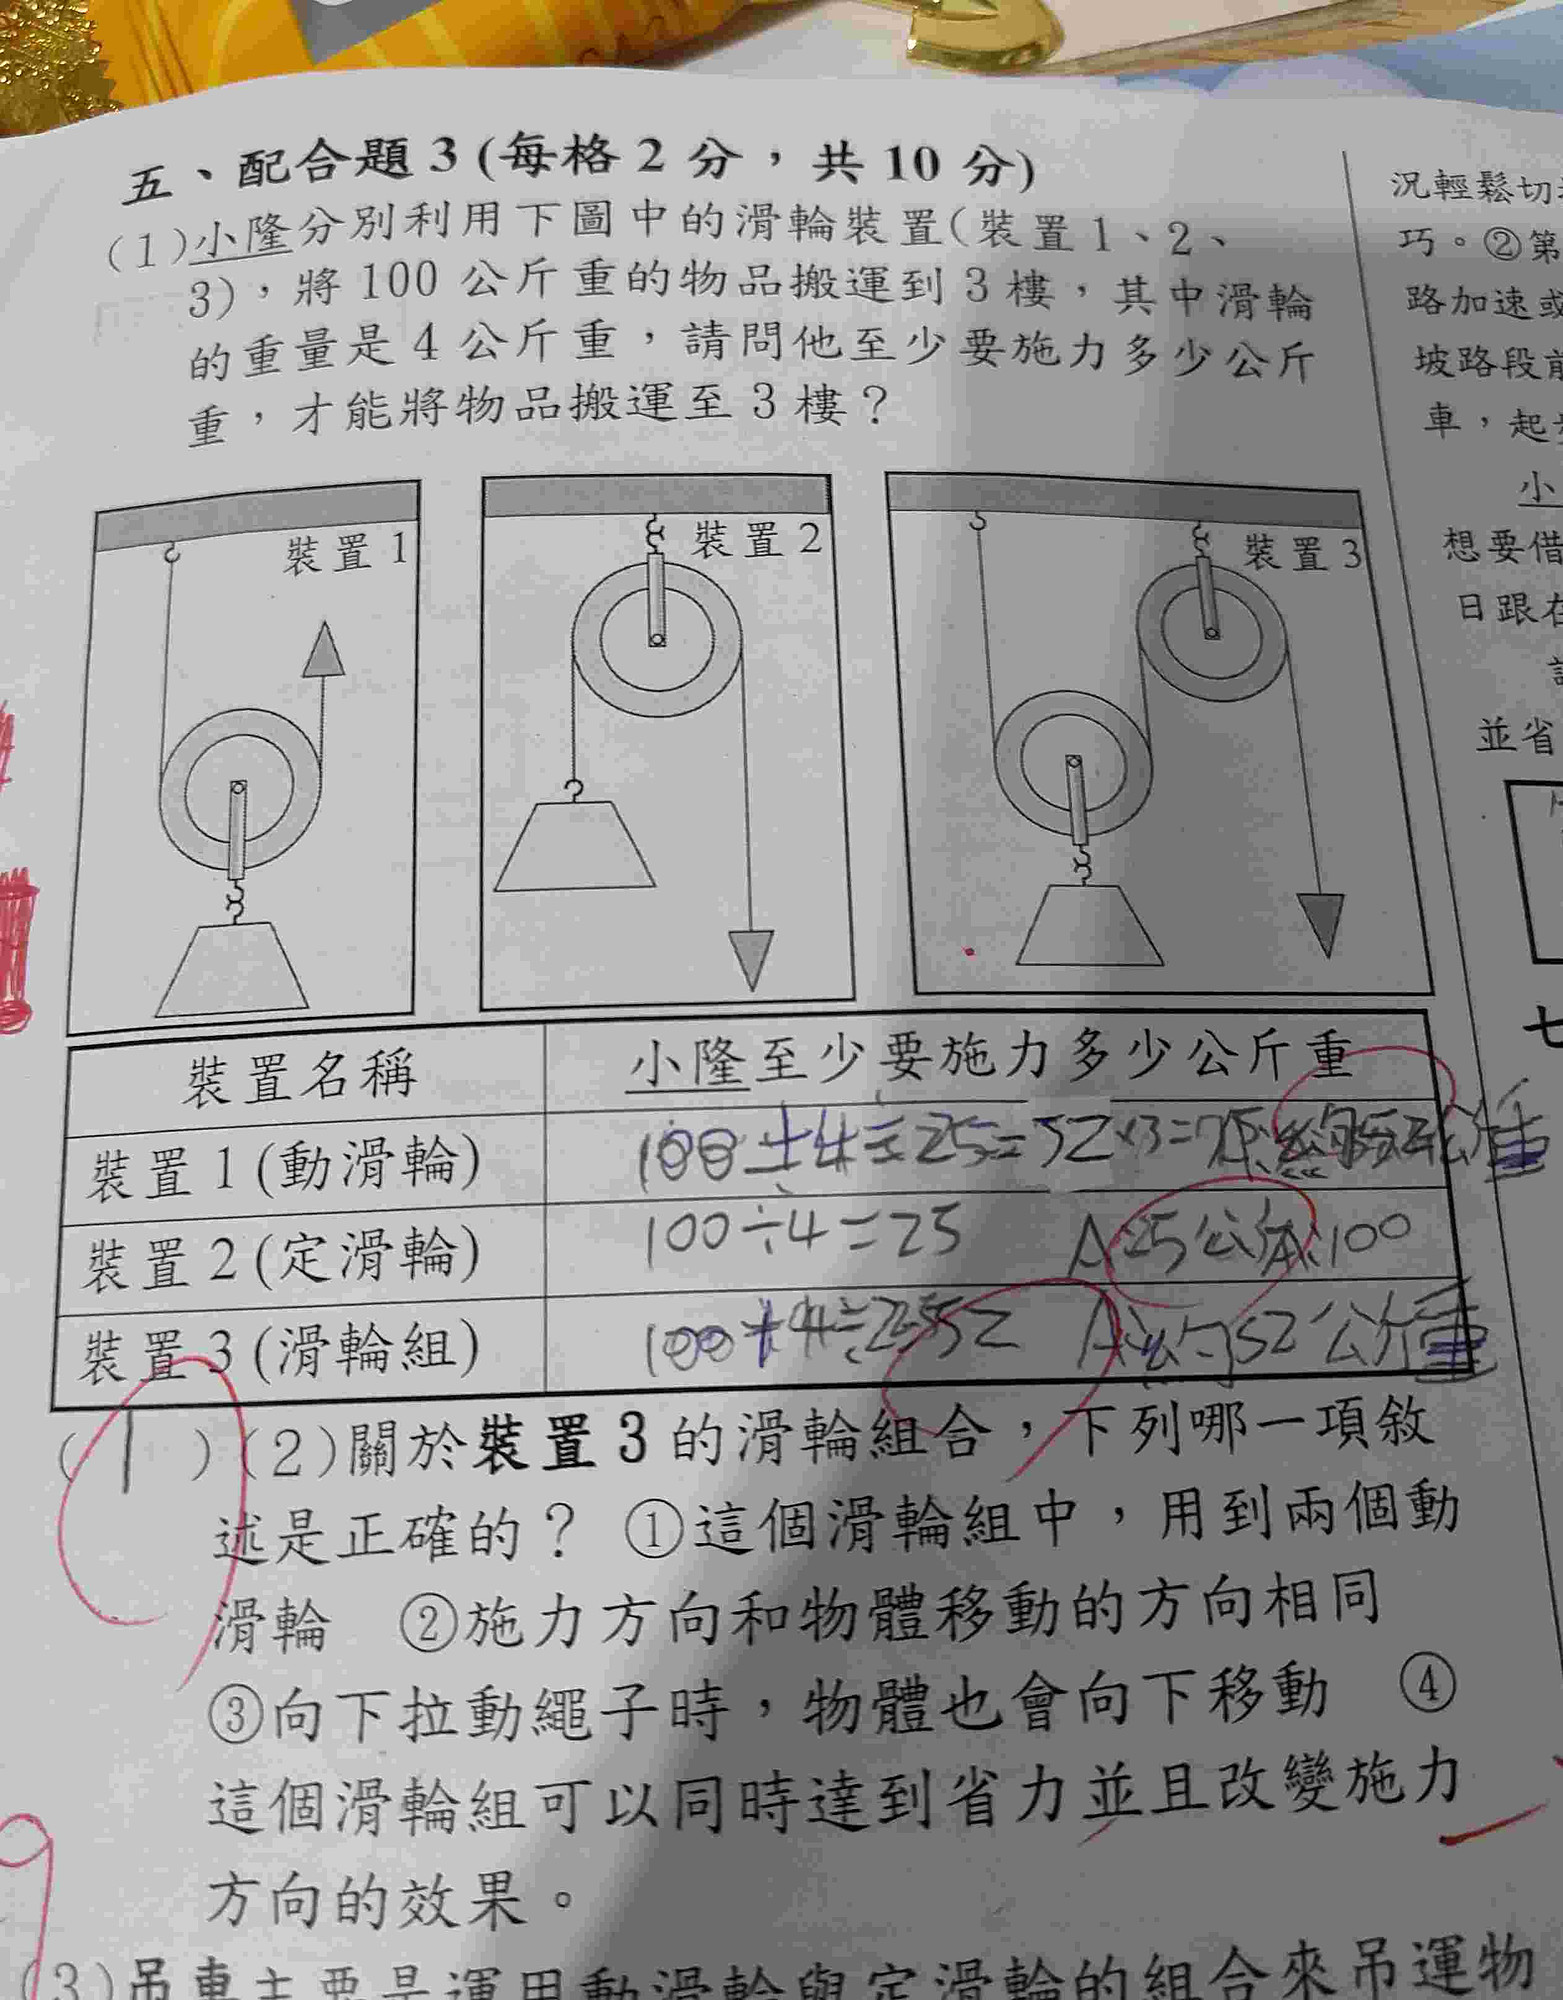 五、配合題3(每格2分，共10分)
(1)小隆分別利用下圖中的滑輪裝置(裝置1、2、
3)，將100公斤重的物品搬運到3樓，其中滑輪
的重量是4公斤重，請問他至少要施力多少公斤
重，才能將物品搬運至3樓？
裝置1
裝置2
裝置3
裝置名稱
小隆至少要施力多少公斤重
裝置1(動滑輪)
裝置2(定滑輪)
100÷4=25
100
裝置3(滑輪組)
52公斤重
(1)(2)關於裝置3的滑輪組合，下列哪一項敘
述是正確的？ ①這個滑輪組中，用到兩個動
滑輪 ②施力方向和物體移動的方向相同
③向下拉動繩子時，物體也會向下移動 ④
這個滑輪組可以同時達到省力並且改變施力
方向的效果。
(3)吊車主要是運用動滑輪與定滑輪的組合來吊運物
況輕鬆切
巧。②第
路加速或
坡路段前
車，起
小
想要借
日跟在
並省
七